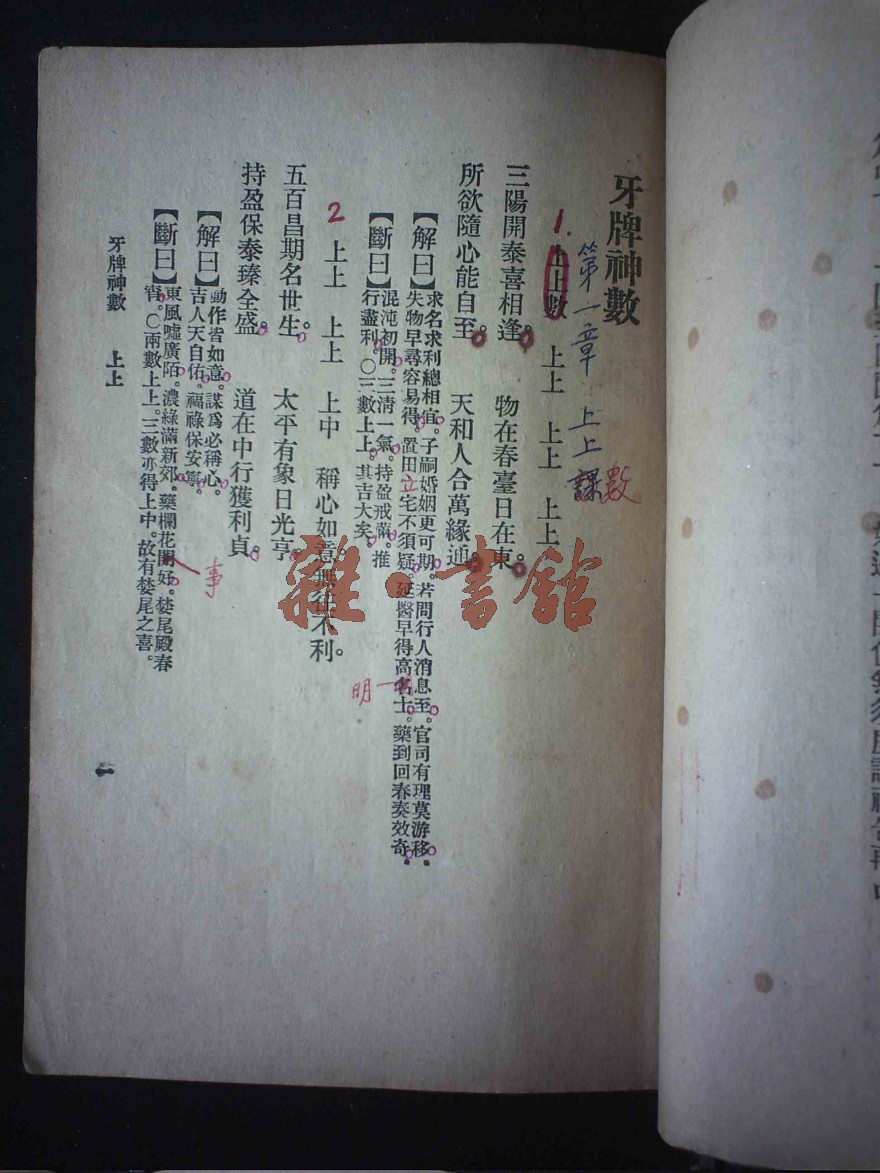 牙牌神數
第一章 上上課數
1. 上上數 上上 上上 上上
三陽開泰喜相逢。 物在春臺日在東。
所欲隨心能自至。 天和人合萬緣通。
【解曰】求名求利總相宜。子嗣婚姻更可期。若問行人消息至。官司有理莫游移。
失物早尋容易得。置田立宅不須疑。延醫早得高名士。藥到回春奏效奇。
明一
【斷曰】混沌初開。三清一氣。持盈戒滿。推
行盡利。〇三數上上。其吉大矣。
2 上上 上上 上中 稱心如意。無往不利。
五百昌期名世生。 太平有象日光亨。
持盈保泰臻全盛。 道在中行獲利貞。
【解曰】動作皆如意。謀爲必稱心。
吉人天自佑。福祿保安寧。
事
【斷曰】東風噓廣陌。濃綠滿新郊。藥欄花開好。婪尾殿春
宵。〇兩數上上。三數亦得上中。故有婪尾之喜。
牙牌神數 上上
一
雜·書館